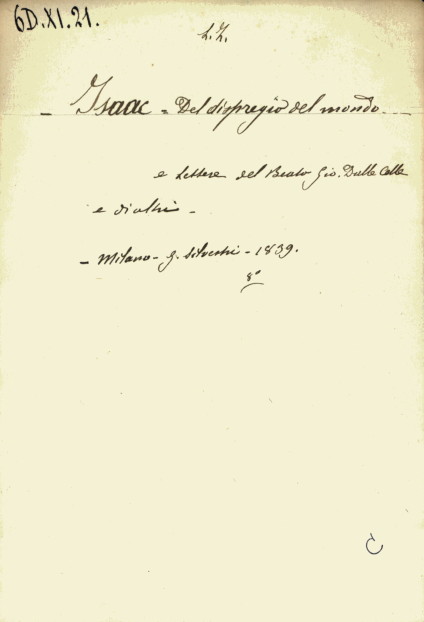 6D.XI.21.
L.Z.
- Isaac = Del dispregio del mondo -
e Lettere del Beato Gio. Dalle Celle
e di altri -
- Milano - G. Silvestri - 1839.
8°
C